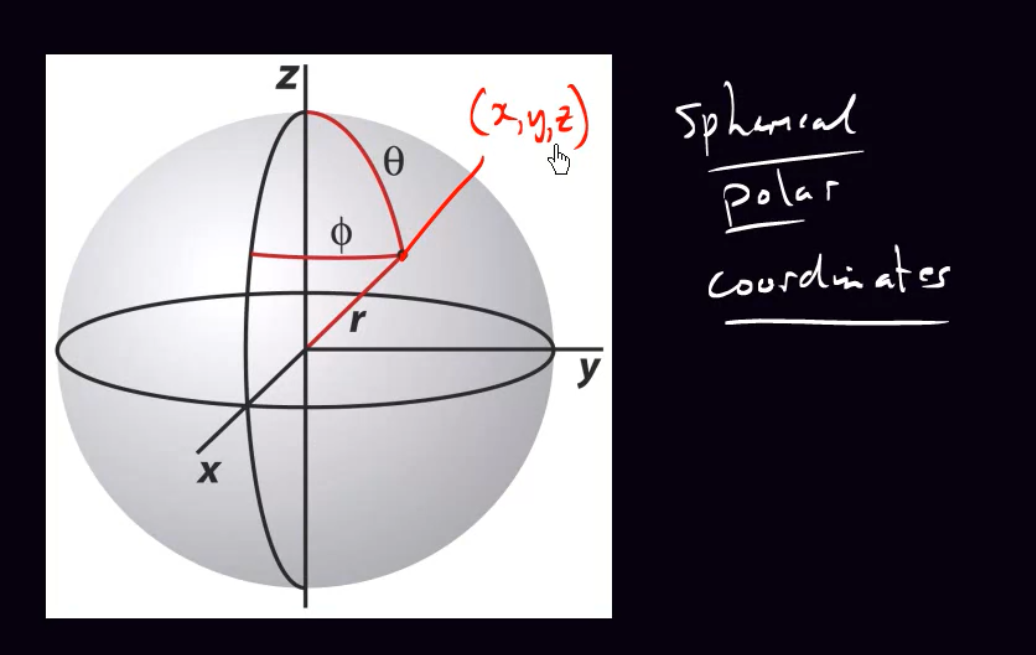 z
(x,y,z)
θ
ϕ
r
y
x
Spherical
polar
coordinates